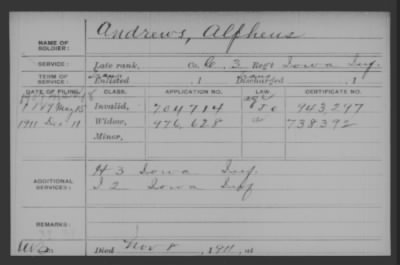 NAME OF SOLDIER: Andrews, Alpheus
SERVICE: Late rank, Co. G, 3 Reg't Iowa Inf.
TERM OF SERVICE: Enlisted , 1 Discharged , 1
DATE OF FILING. CLASS. APPLICATION NO. LAW. CERTIFICATE NO.
May 15 Invalid, 704,714 943,297
1911 Dec 11 Widow, 976,628 738392
Minor,
ADDITIONAL SERVICES: H 3 Iowa Inf.
I 2 Iowa Inf
REMARKS:
Died Nov 8, 1911, at